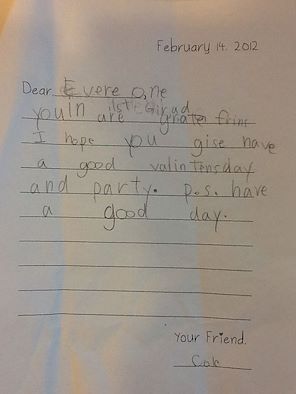 February 14. 2012
Dear, Evere one
youin are grater frins
I hope you gise have
a good valintensday
and party. P.S. have
a good day.
Your Friend.